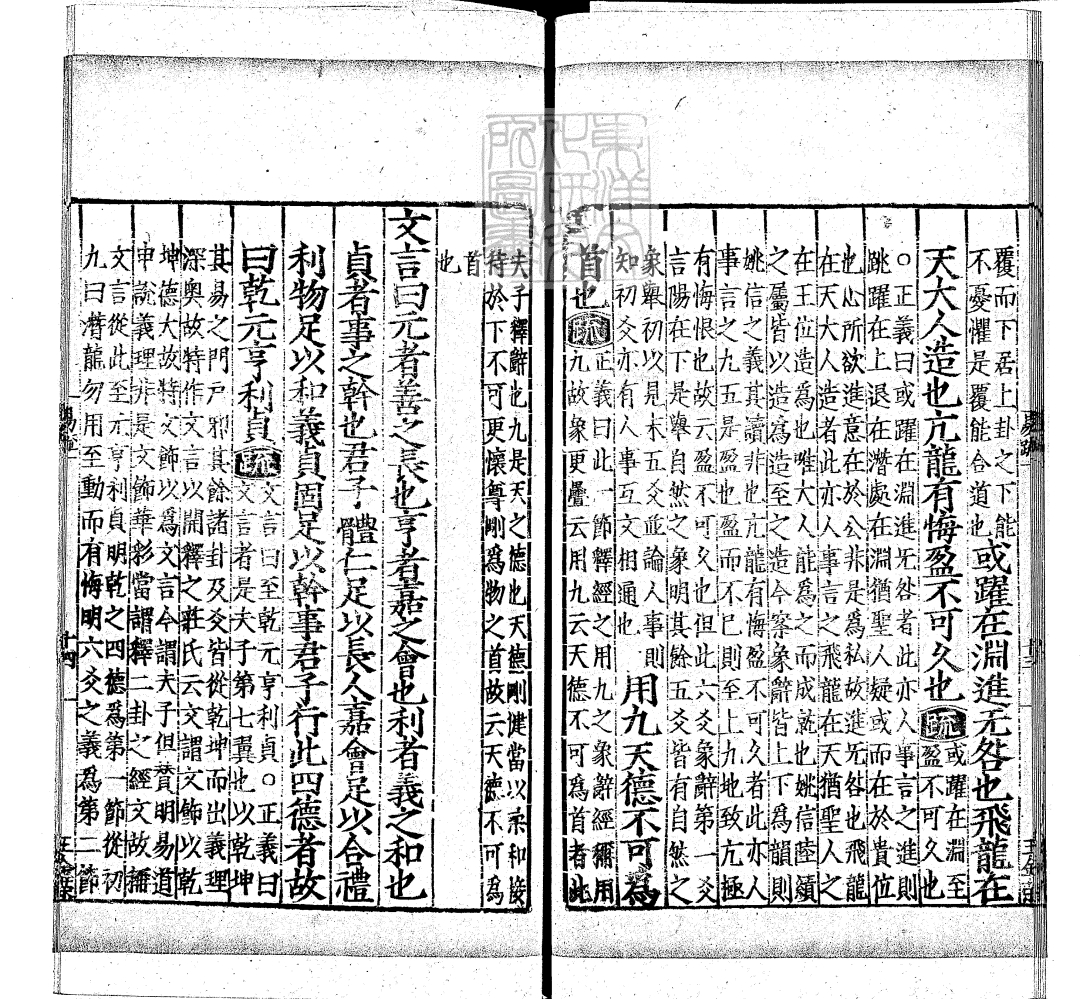 覆而下居上卦之下能
不憂懼是覆能合道也或躍在淵進无咎也飛龍在
天大人造也亢龍有悔盈不可久也疏或躍在淵至
盈不可久也
○正義曰或躍在淵進无咎者此亦人事言之進則
跳躍在上退在潛處在淵猶聖人疑或而在於貴位
也心所欲進意在於公非是爲私故進无咎也飛龍
在天大人造者此亦人事言之飛龍在天猶聖人之
在王位造爲也唯大人能爲之而成就也姚信陸績
之屬皆以造爲造至之造今案象辭皆上下爲韻則
姚信之義其讀非也亢龍有悔盈不可久者此亦人
事言之九五是盈也盈而不已則至上九地致亢極
有悔恨也故云盈不可久也但此六爻象辭第一爻
言陽在下是舉自然之象明其餘五爻皆有自然之
象舉初以見末五爻並論人事則
知初爻亦有人事互文相通也用九天德不可爲
首也疏正義曰此一節釋經之用九之象辭經稱用
九故象更疊云用九云天德不可爲首者此
夫子釋辭也九是天之德也天德剛健當以柔和接
待於下不可更懷尊剛爲物之首故云天德不可爲
首
也
文言曰元者善之長也亨者嘉之會也利者義之和也
貞者事之幹也君子體仁足以長人嘉會足以合禮
利物足以和義貞固足以幹事君子行此四德者故
曰乾元亨利貞疏文言曰至乾元亨利貞○正義曰
文言者是夫子第七翼也以乾坤
其易之門戶邪其餘諸卦及爻皆從乾坤而出義理
深奧故特作文言以開釋之莊氏云文謂文飾以乾
坤德大故特文飾以爲文言今謂夫子但贊明易道
申說義理非是文飾華彩當謂釋二卦之經文故稱
文言從此至元亨利貞明乾之四德爲第一節從初
九曰潛龍勿用至動而有悔明六爻之義爲第二節
易疏一
十三
十四